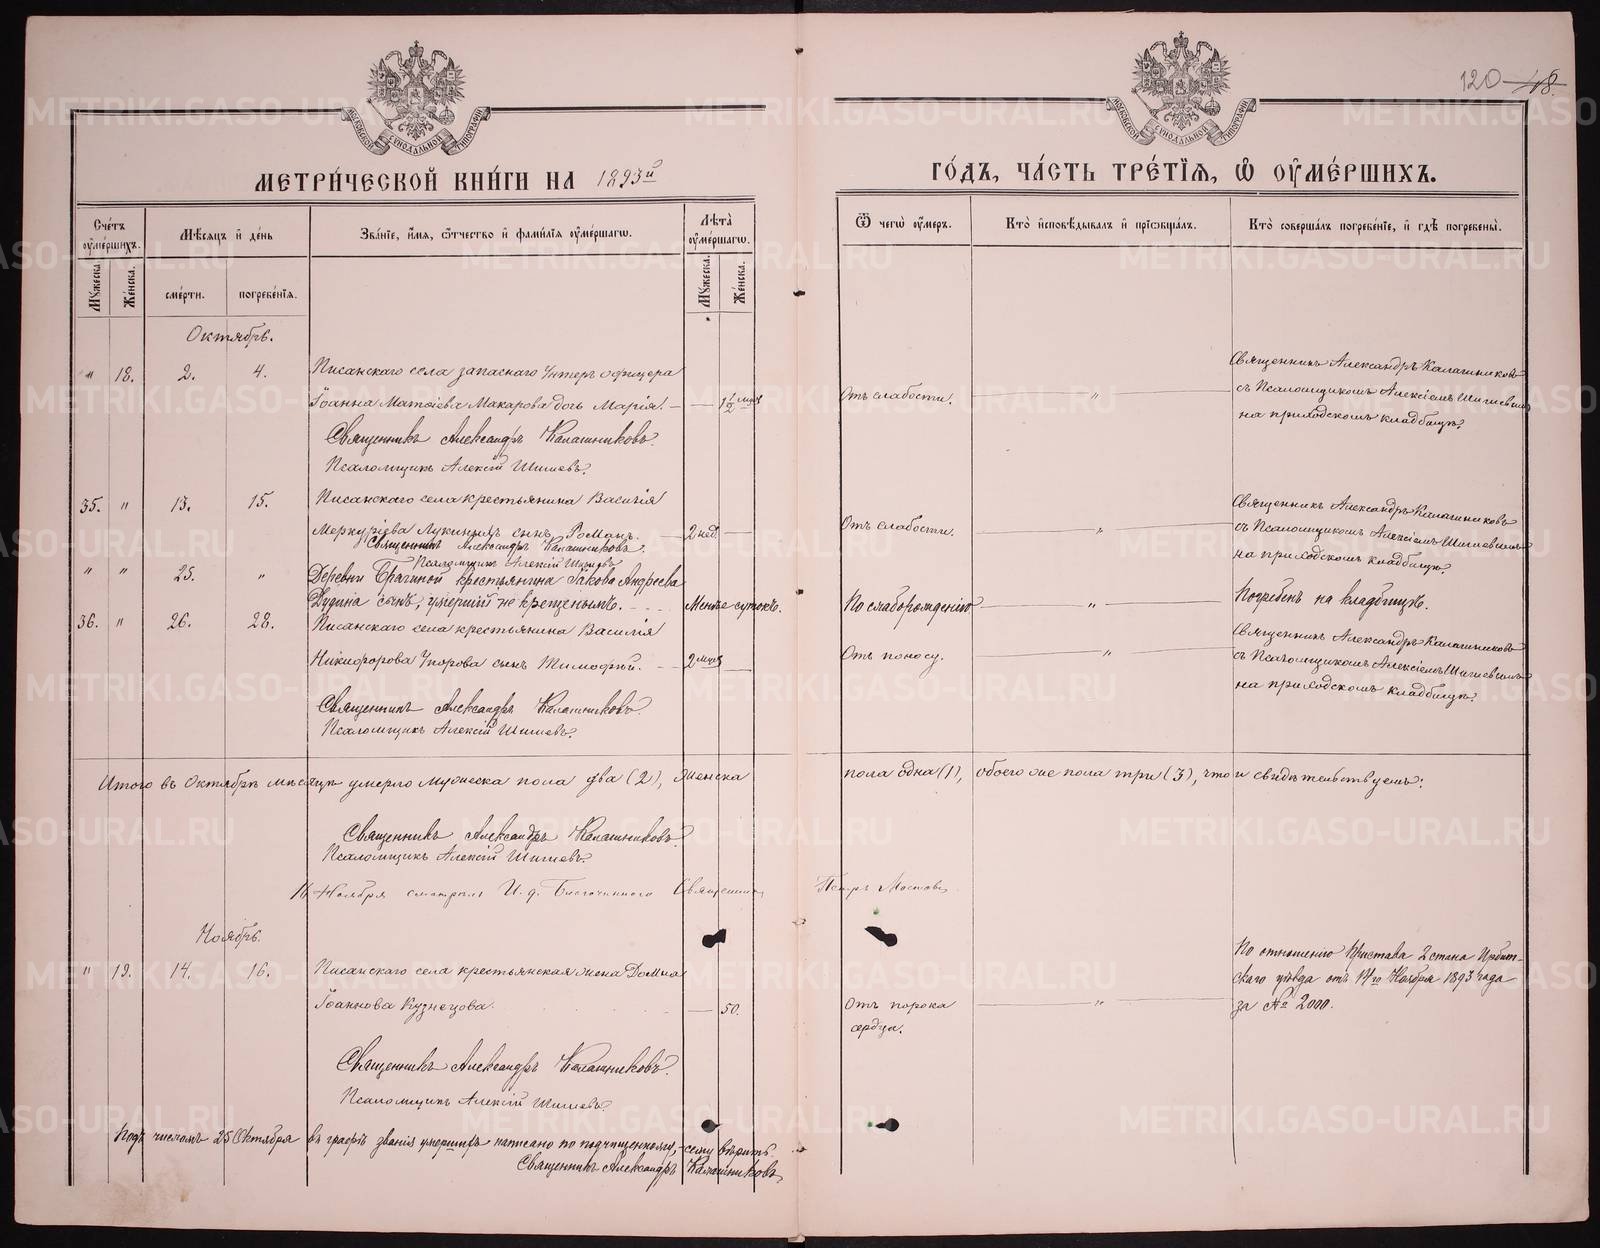 120 48.
МОСКОВСКОЙ СѴНОДАЛЬНОЙ ТИПОГРАФІИ
МОСКОВСКОЙ СѴНОДАЛЬНОЙ ТИПОГРАФІИ
МЕТРИ́ЧЕСКОЙ КНИ́ГИ НА 1893й
ГО́ДЪ, ЧА́СТЬ ТРЕ́ТІѦ, Ѽ ОУ҆МЕ́РШИХЪ.
Счетъ оумершихъ.
Мѣсяцъ и день
Званіе, имя, отчество и фамилія оумершагѡ.
Лѣта оумершагѡ.
Ѿ чегѡ оумеръ.
Кто исповѣдывалъ и пріобщалъ.
Кто совершалъ погребеніе, и гдѣ погребены.
Мужеска. Женска. смерти. погребенія. Мужеска. Женска.
Октябрь.
" 18. 2. 4. Писанскаго села запаснаго Унтеръ офицера
Іоанна Матѳіева Макарова дочь Марія. — — 1½ мѣся Отъ слабости. — " —
Священникъ Александръ Калашниковъ
съ Псаломщикомъ Алексіемъ Шишевымъ
на приходскомъ кладбищѣ.
Священникъ Александръ Калашниковъ.
Псаломщикъ Алексій Шишевъ.
35. " 13. 15. Писанскаго села крестьянина Василія
Меркуріева Лукиныхъ сынъ Романъ. — 2 нед. — Отъ слабости. — " —
Священникъ Александръ Калашниковъ
съ Псаломщикомъ Алексіемъ Шишевымъ
на приходскомъ кладбищѣ.
Священникъ Александръ Калашниковъ.
Псаломщикъ Алексій Шишевъ
" " 25. " Деревни Брагиной крестьянина Іакова Андреева
Дудина сынъ, умершій не крещенымъ. — Менѣе сутокъ. По слаборожденію — " — Погребенъ на кладбищѣ.
36. " 26. 28. Писанскаго села крестьянина Василія
Никифорова Упорова сынъ Тимофей. — 2 мѣся — Отъ поносу. — " —
Священникъ Александръ Калашниковъ
съ Псаломщикомъ Алексіемъ Шишевымъ
на приходскомъ кладбищѣ.
Священникъ Александръ Калашниковъ.
Псаломщикъ Алексій Шишевъ.
Итого въ Октябрѣ мѣсяцѣ умерло мужеска пола два (2), женска пола одна (1), обоего же пола три (3), что и свидѣтельствуемъ:
Священникъ Александръ Калашниковъ.
Псаломщикъ Алексій Шишевъ.
16 Ноября смотрѣлъ И. д. Благочиннаго Священникъ Петръ Мостовъ
Ноябрь.
" 19. 14. 16. Писанскаго села крестьянская жена Домна
Іоаннова Кузнецова. — 50. Отъ порока
сердца. — " —
По отношенію Пристава 2 стана Ирбит-
скаго уѣзда отъ 14го Ноября 1893 года
за № 2000.
Священникъ Александръ Калашниковъ.
Псаломщикъ Алексій Шишевъ.
Подъ числомъ 25 Октября въ графѣ званія умершихъ написано по подчищенному, чему вѣрить.
Священникъ Александръ Калашниковъ
METRIKI.GASO-URAL.RU